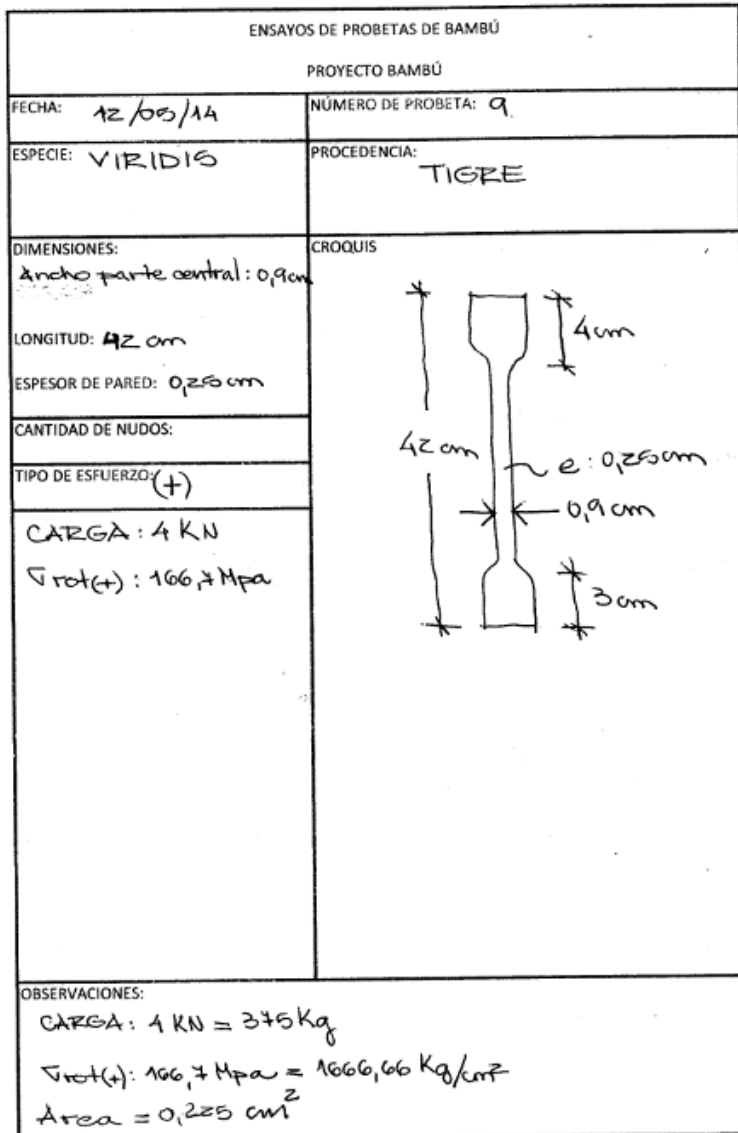 ENSAYOS DE PROBETAS DE BAMBÚ
PROYECTO BAMBÚ
FECHA: 12/05/14
NÚMERO DE PROBETA: 9
ESPECIE: VIRIDIS
PROCEDENCIA:
TIGRE
DIMENSIONES:
Ancho parte central: 0,9cm
LONGITUD: 42 cm
ESPESOR DE PARED: 0,25cm
CANTIDAD DE NUDOS:
TIPO DE ESFUERZO: (+)
CARGA: 4 KN
σrot(+): 166,7 Mpa
CROQUIS
4cm
42 cm
e: 0,25cm
0,9cm
3cm
OBSERVACIONES:
CARGA: 4 KN = 375Kg
σrot(+): 166,7 Mpa = 1666,66 Kg/cm²
Area = 0,225 cm²